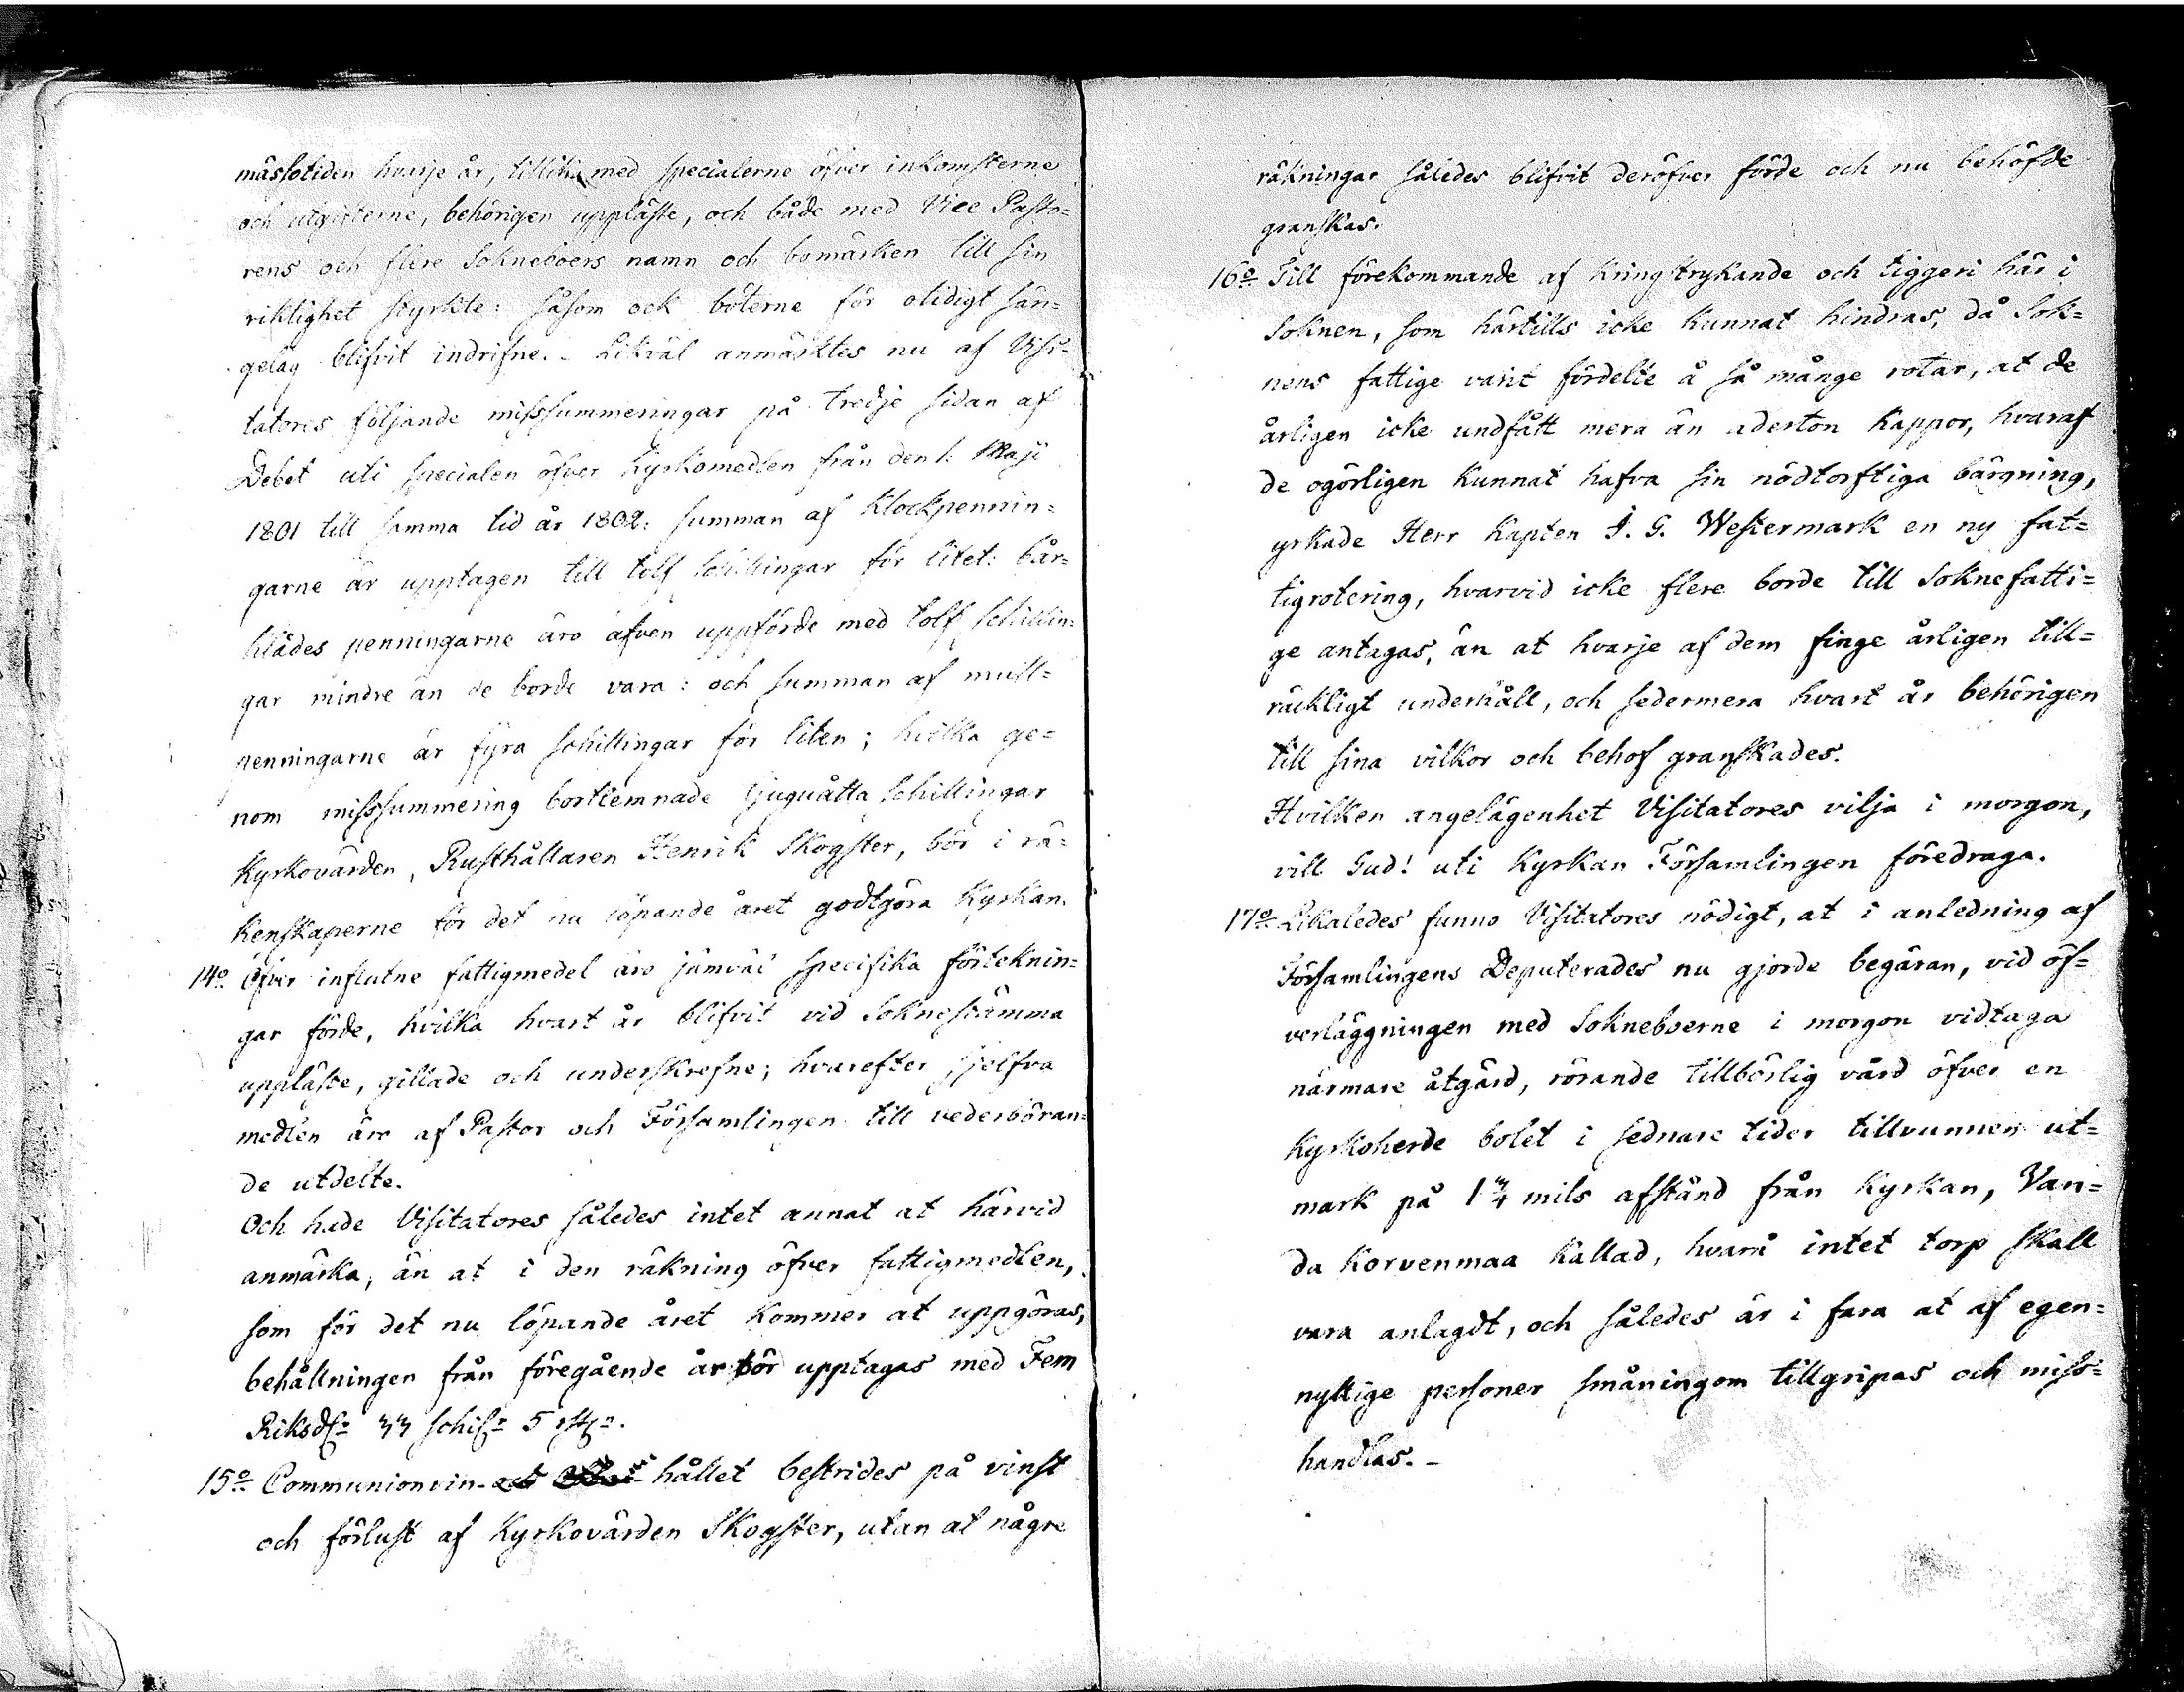 mässotiden hvarje år, tillika med specialerne öfver inkomsterne
och utgifterne, behörigen uppläste, och både med Vice Pasto=
rens och flere Sokneboers namn och bomärken till sin
riktighet styrkte: såsom ock böterne för otidigt sän=
gelag blifvit indrifne. - Likväl anmärktes nu af Visi=
tatores följande misssummeringar på tredje sidan af
Debet uti specialen öfver kyrkomedlen från den 1. Maji
1801 till samma tid år 1802: summan af Klockpennin=
garne är upptagen till tolf schillingar för litet: bår=
klädes penningarne äro äfven uppförde med tolf schillin=
gar mindre än de borde vara: och summan af mull=
penningarne är fyra schillingar för liten; hvilka ge=
nom misssummering bortlemnade tjuguåtta schillingar
Kyrkovärden, Rusthållaren Henrik Skogster, bör i rä=
kenskaperne för det nu löpande året godtgöra Kyrkan.
14º Öfver influtne fattigmedel äro jämväl specifika förteknin=
gar förde, hvilka hvart år blifvit vid Soknestämma
uppläste, gillade och underskrefne; hvarefter sjelfva
medlen äro af Pastor och Församlingen till vederböran=
de utdelte.
Och hade Visitatores således intet annat at härvid
anmärka, än at i den räkning öfver fattigmedlen,
som för det nu löpande året kommer at uppgöras,
behållningen från föregående år bör upptagas med Fem
Riksd. 33 schil. 5 rst.
15º Communionvin- hållet bestrides på vinst
och förlust af Kyrkovärden Skogster, utan at någre
räkningar således blifvit deröfver förde och nu behöfde
granskas.
16º Till förekommande af kringstrykande och tiggeri här i
Soknen, som härtills icke kunnat hindras, då Sok=
nens fattige varit fördelte å så många rotar, at de
årligen icke undfått mera än aderton kappor, hvaraf
de ogörligen kunnat hafva sin nödtorftiga bärgning,
yrkade Herr Kapten J. G. Westermark en ny fat=
tigrotering, hvarvid icke flere borde till Soknefatti=
ge antagas, än at hvarje af dem finge årligen till=
räckligt underhåll, och sedermera hvart år behörigen
till sina vilkor och behof granskades.
Hvilken angelägenhet Visitatores vilja i morgon,
vill Gud! uti Kyrkan Församlingen föredraga.
17º Likaledes funno Visitatores nödigt, at i anledning af
Församlingens Deputerades nu gjorde begäran, vid öf=
verläggningen med Sokneboerne i morgon vidtaga
närmare åtgärd, rörande tillbörlig vård öfver en
Kyrkoherde bolet i sednare tider tillvunnen ut=
mark på 1 3/4 mils afstånd från Kyrkan, Van=
da Korvenmaa kallad, hvarå intet torp skall
vara anlagdt, och således är i fara at af egen=
nyttige personer småningom tillgripas och miss=
handlas. -